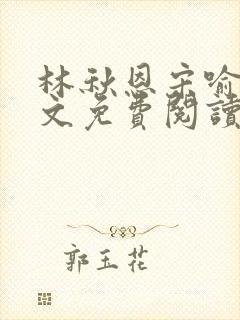 林秋恩宋喻
文免費閱讀
郭玉花